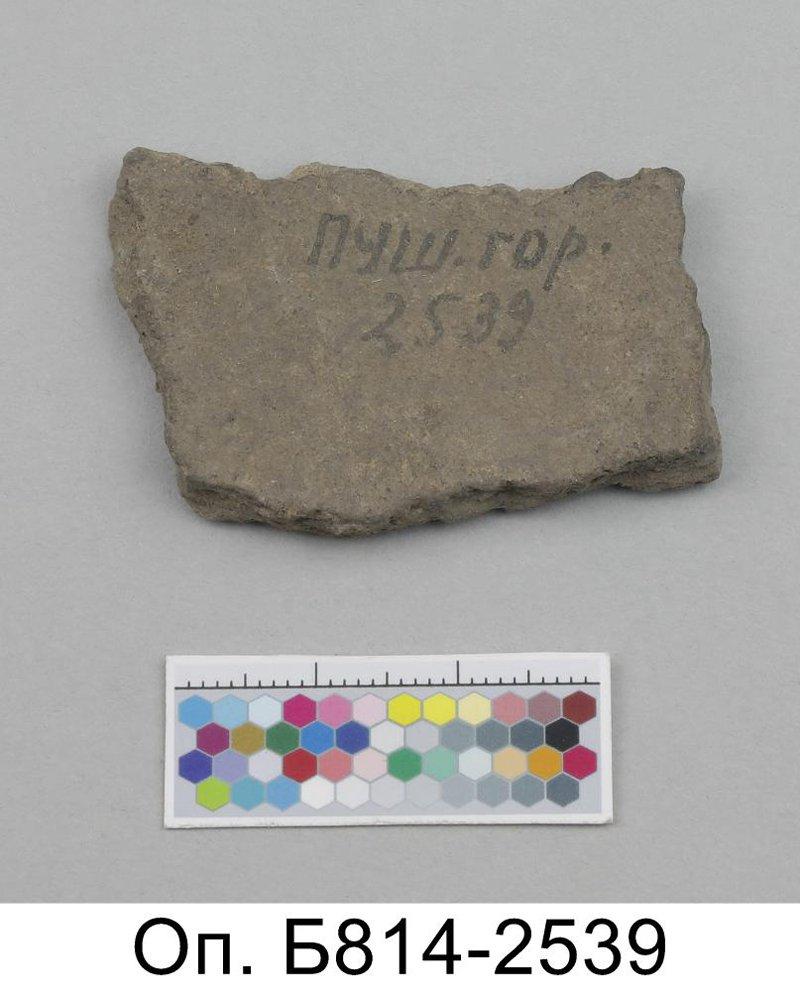 ПУШ.гор.
2539
Оп. Б814-2539